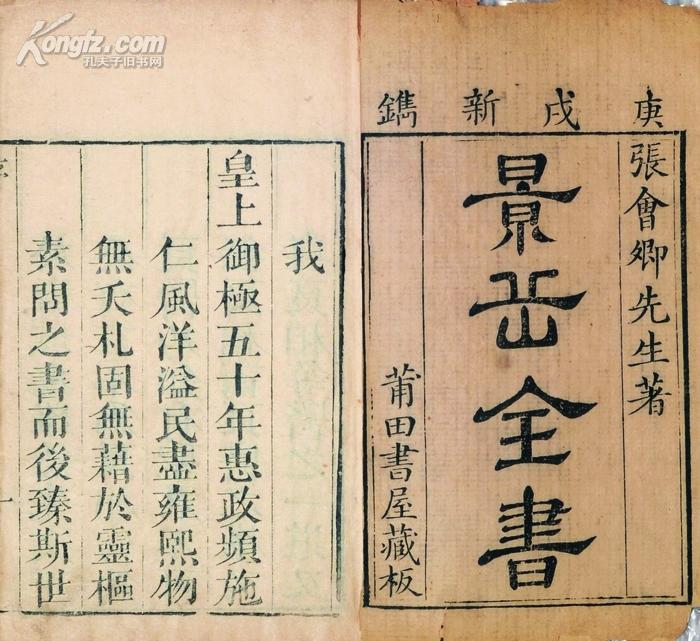 Kongfz.com
孔夫子旧书网
庚戌新鐫
張會卿先生著
景岳全書
莆田書屋藏板
我
皇上御極五十年惠政頻施
仁風洋溢民盡雍熙物
無夭札固無藉於靈樞
素問之書而後臻斯世